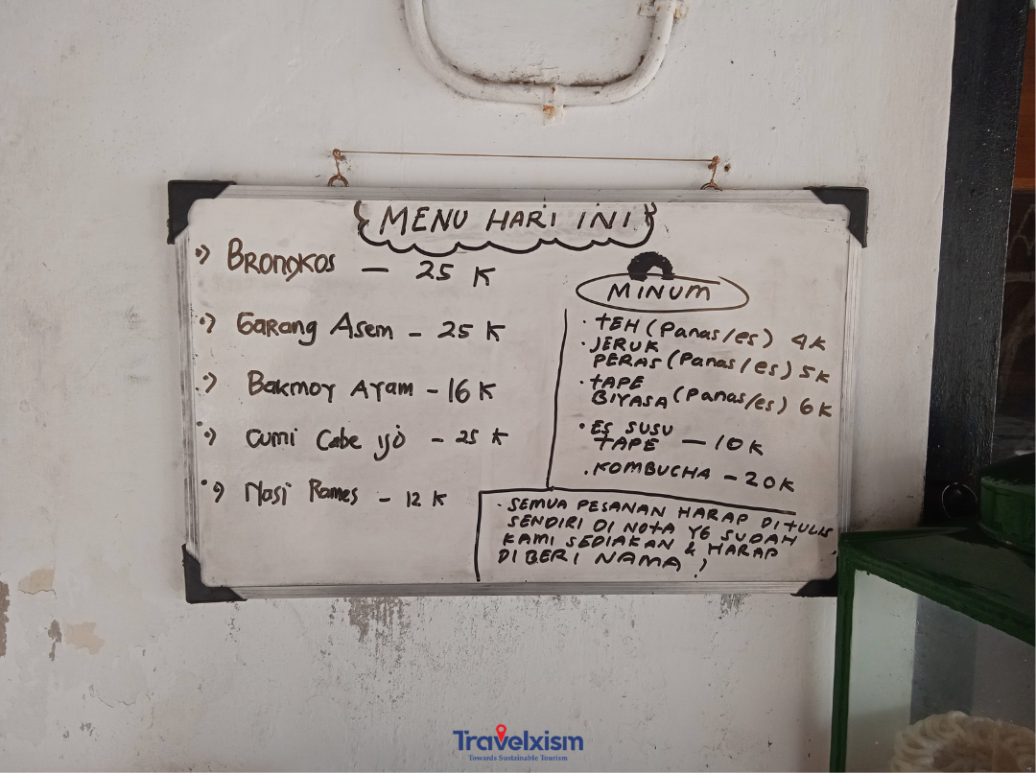 MENU HARI INI
Brongkos – 25 K
Garang Asem – 25 K
Bakmoy Ayam – 16 K
Cumi Cabe ijo – 25 K
Nasi Rames – 12 K
MINUM
• TEH (Panas/es) 4K
• JERUK
PERAS (Panas/es) 5K
• TAPE
BIYASA (Panas/es) 6K
• ES SUSU
TAPE – 10K
• KOMBUCHA – 20K
• SEMUA PESANAN HARAP DITULIS
SENDIRI DI NOTA YG SUDAH
KAMI SEDIAKAN & HARAP
DIBERI NAMA !
Travelxism
Towards Sustainable Tourism